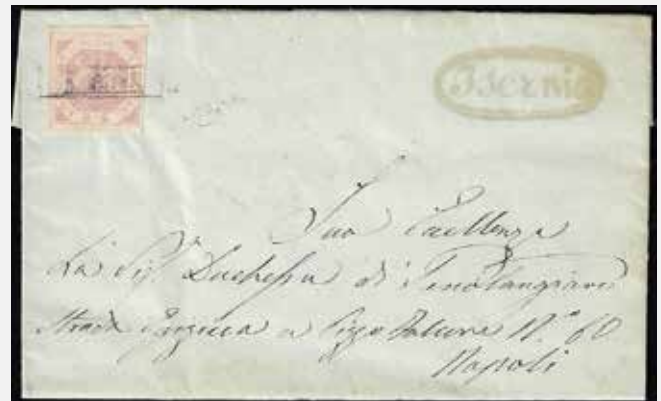 Isernia
Sua Eccellenza
La Sig.ª Duchessa di
Strada a Pizzo Falcone N.º 60
Napoli